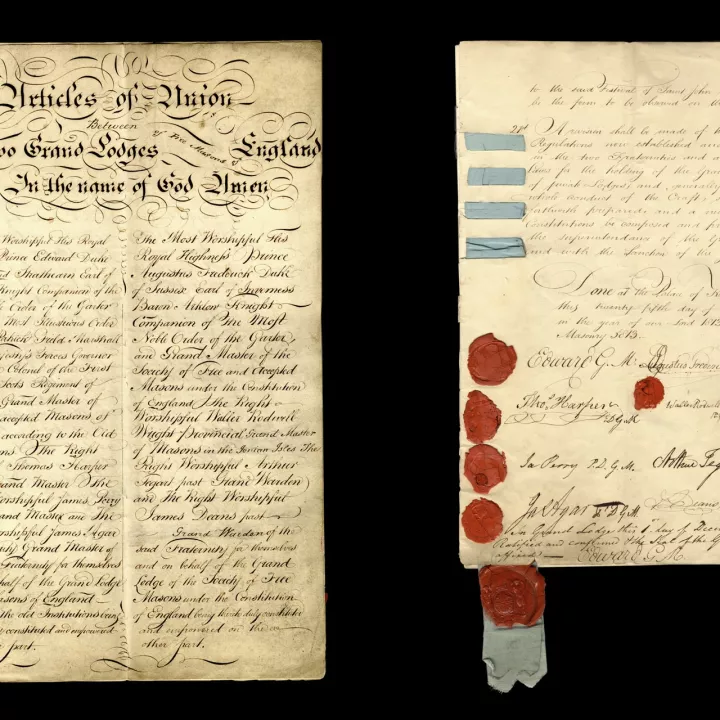 Articles of Union
Between
wo Grand Lodges of Free Masons of England
In the name of God Amen
Worshipful His Royal
Prince Edward Duke
Strathearn Earl of
Knight Companion of the
Order of the Garter
Most Illustrious Order
Patrick Field Marshall
Forces Governor
Colonel of the First
Scots Regiment of
Grand Master of
accepted Masons of
according to the Old
The Right
Thomas Harper
Grand Master The
Worshipful James Perry
and Master and The
Worshipful James Agar
Grand Master of
Fraternity for themselves
half of the Grand Lodge
asons of England
the old Institutions being
constituted and empowered
part.
The Most Worshipful His
Royal Highness Prince
Augustus Frederick Duke
of Sussex Earl of Inverness
Baron Arklow Knight
Companion of The Most
Noble Order of the Garter
and Grand Master of the
Society of Free and Accepted
Masons under the Constitution
of England The Right
Worshipful Waller Rodwell
Wright Provincial Grand Master
of Masons in the Ionian Isles The
Right Worshipful Arthur
Tegart past Grand Warden
and The Right Worshipful
James Deans past
Grand Warden of the
said Fraternity for themselves
and on behalf of the Grand
Lodge of the Society of Free
Masons under the Constitution
of England being thereto duly constituted
and empowered on the
other part.
to the said Festival of Saint John
be the form to be observed on th
21st A revision shall be made of
Regulations now established and
in the two Fraternities and
laws for the holding of the Gra
of Lodges and generally
whole conduct of the Craft
prepared and a n
Constitutions be composed and
the superintendance of the G
and with the Sanction of the
Done at the Palace of
this twenty fifth day of
in the year of our Lord 1813
Masonry 5813
Edward G. M. Augustus Freder
Thos. Harper D.G.M.
Waller Rodwell
Ja Perry P. D. G. M. Arthur Teg
Jas Agar P D G M
J. Deans
In Grand Lodge this 1st day of Dec
Ratified and confirmed & the Seal of the G
affixed
Edward G. M.